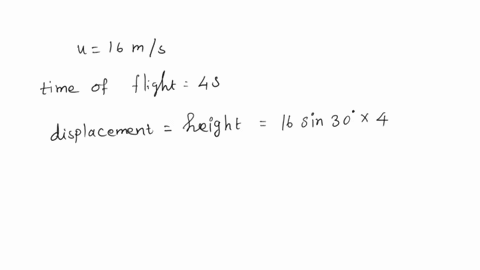 u = 16 m/s
time of flight = 4s
displacement = height = 16 sin 30° × 4